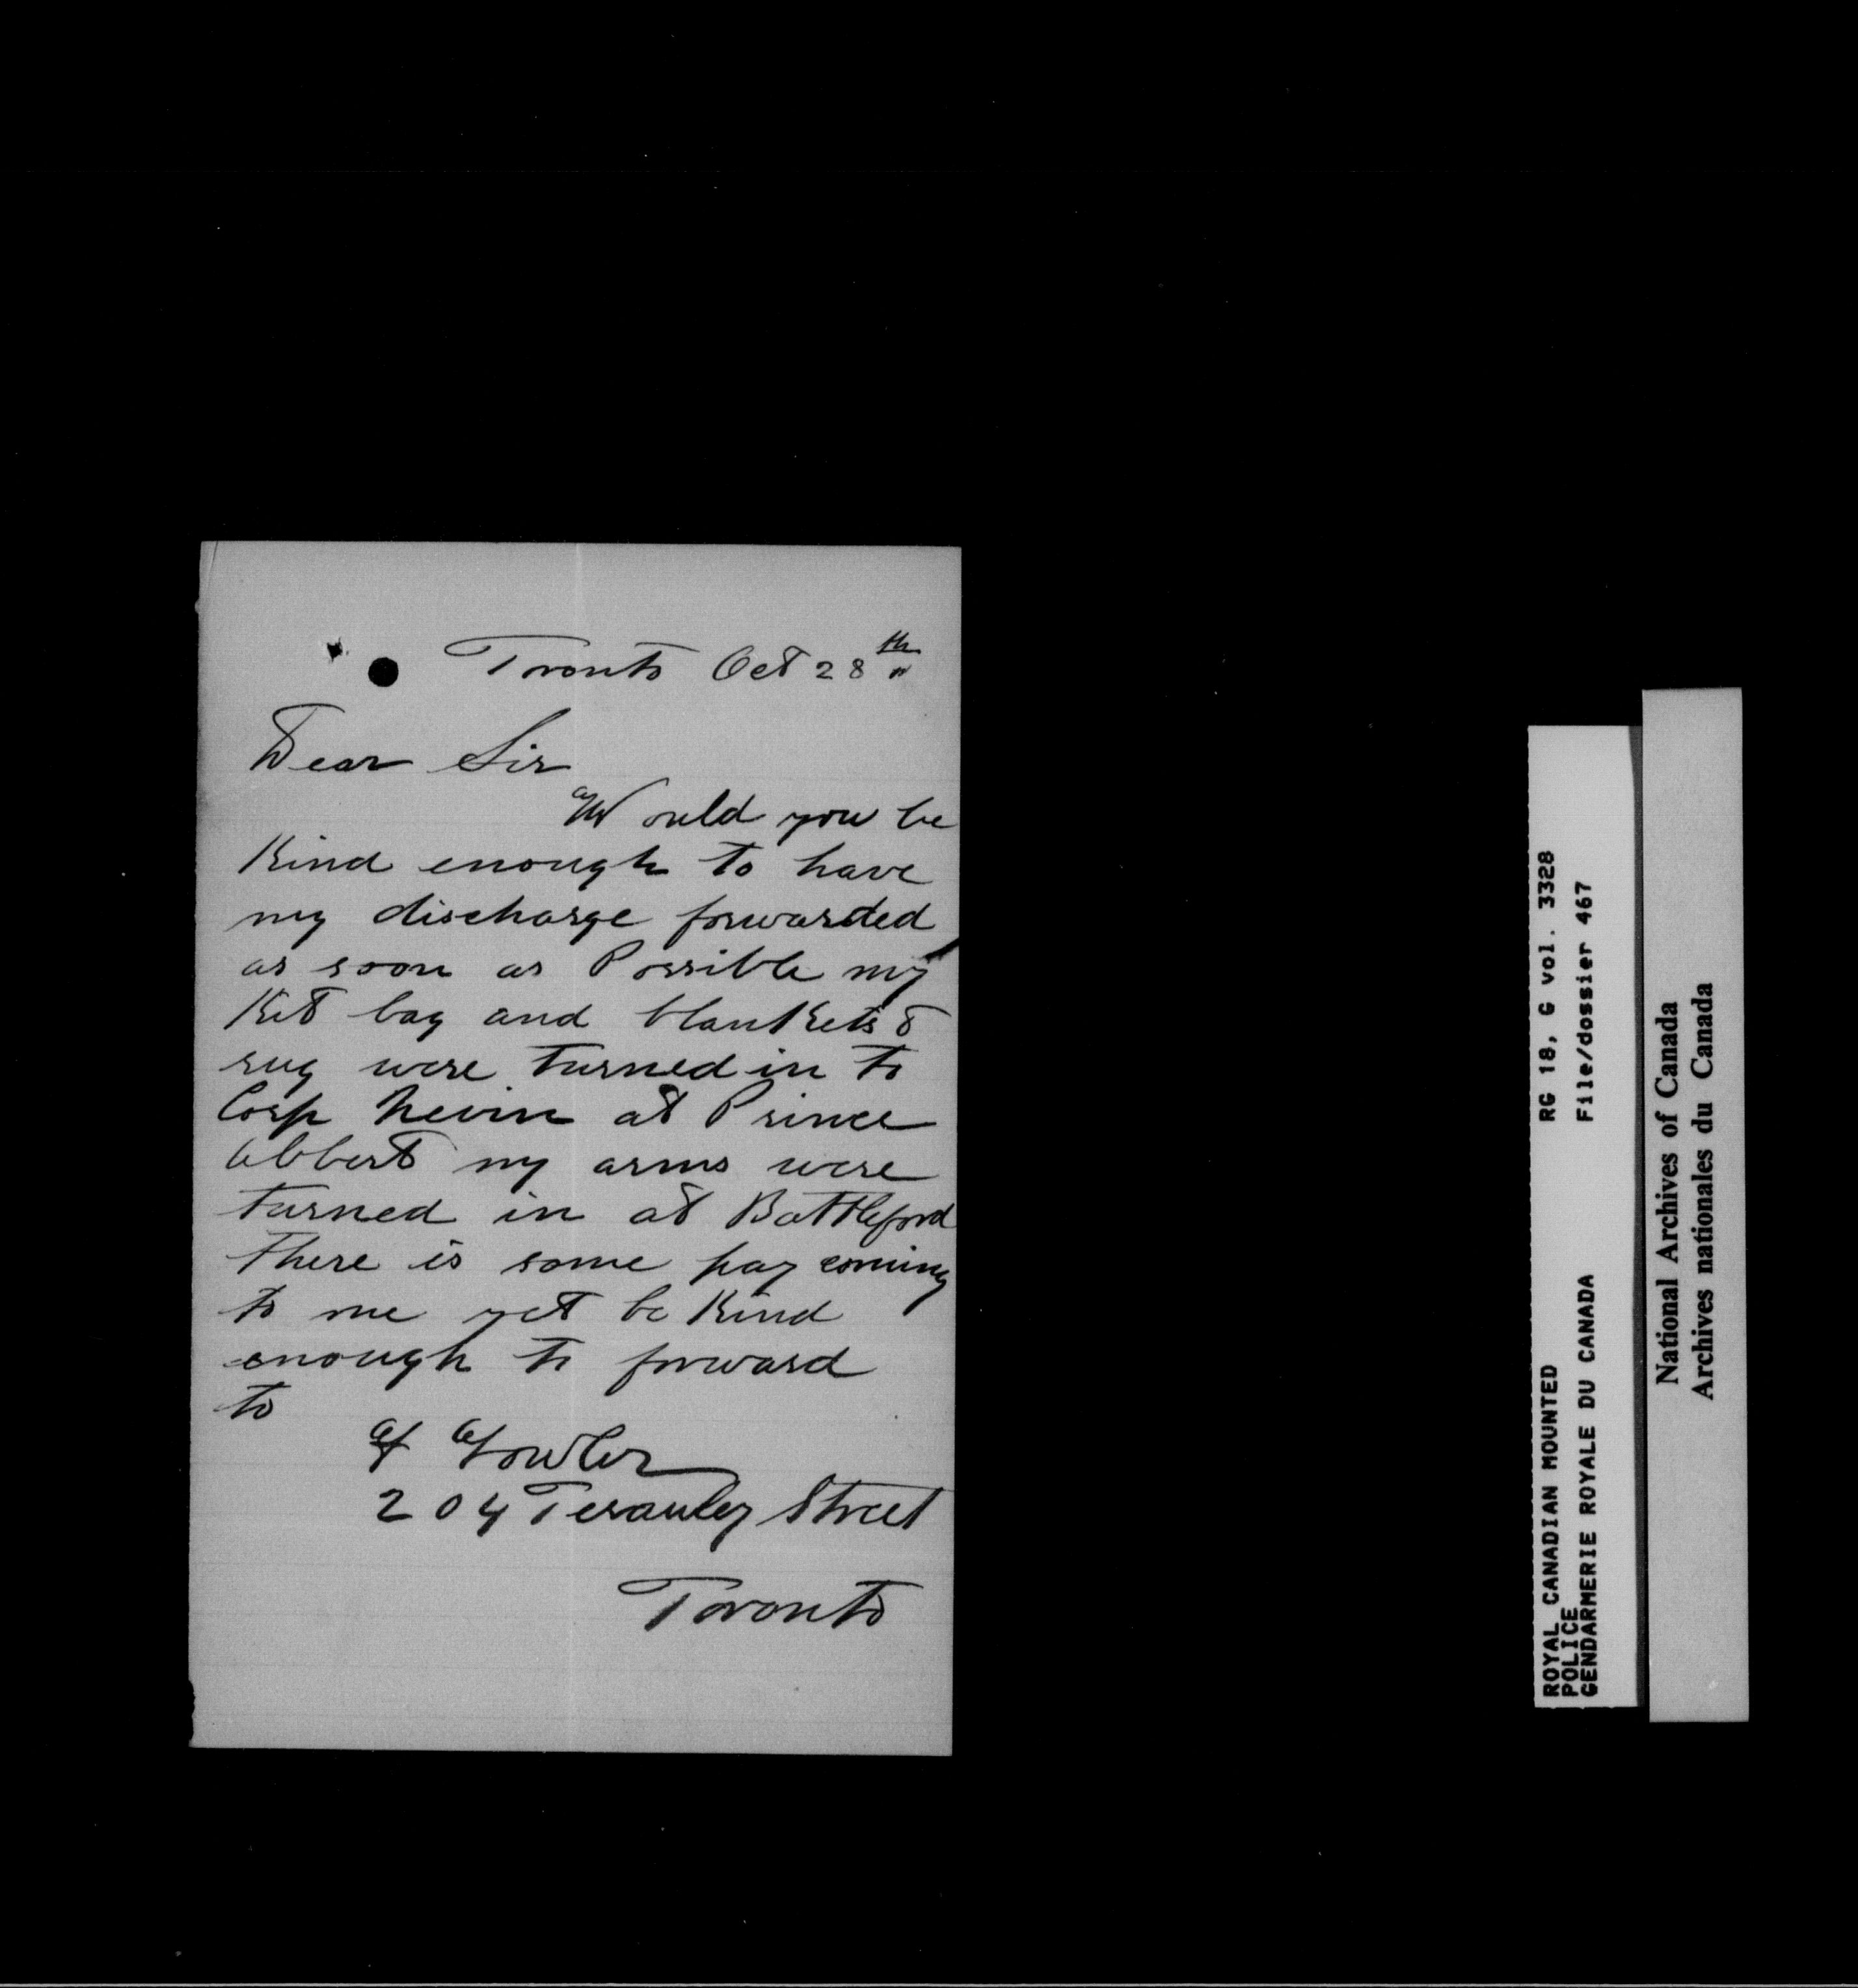 Toronto Oct 28th
Dear Sir
Would you be
Kind enough to have
my discharge forwarded
as soon as Possible my
Kit bag and blankets &
rug were turned in to
Corp Nevin at Prince
Albert my arms were
turned in at Battleford
There is some pay coming
to me yet be Kind
enough to forward
to
F Fowler
204 Terauley Street
Toronto
ROYAL CANADIAN MOUNTED
POLICE
GENDARMERIE ROYALE DU CANADA
RG 18, G vol. 3328
File/dossier 467
National Archives of Canada
Archives nationales du Canada